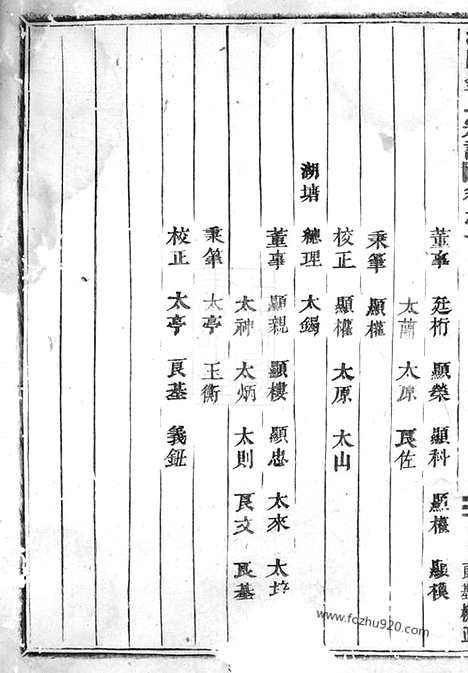 董事 廷桁 顯榮 顯科 顯權 顯模
太蘭 太原 良佐
秉筆 顯權
校正 顯權 太原 太山
湖塘 總理 太錫
董事 顯親 顯樓 顯忠 太來 太
太神 太炳 太則 良文 良基
秉筆 太亭 玉衡
校正 太亭 良基 義鈕
www.fczhu920.com